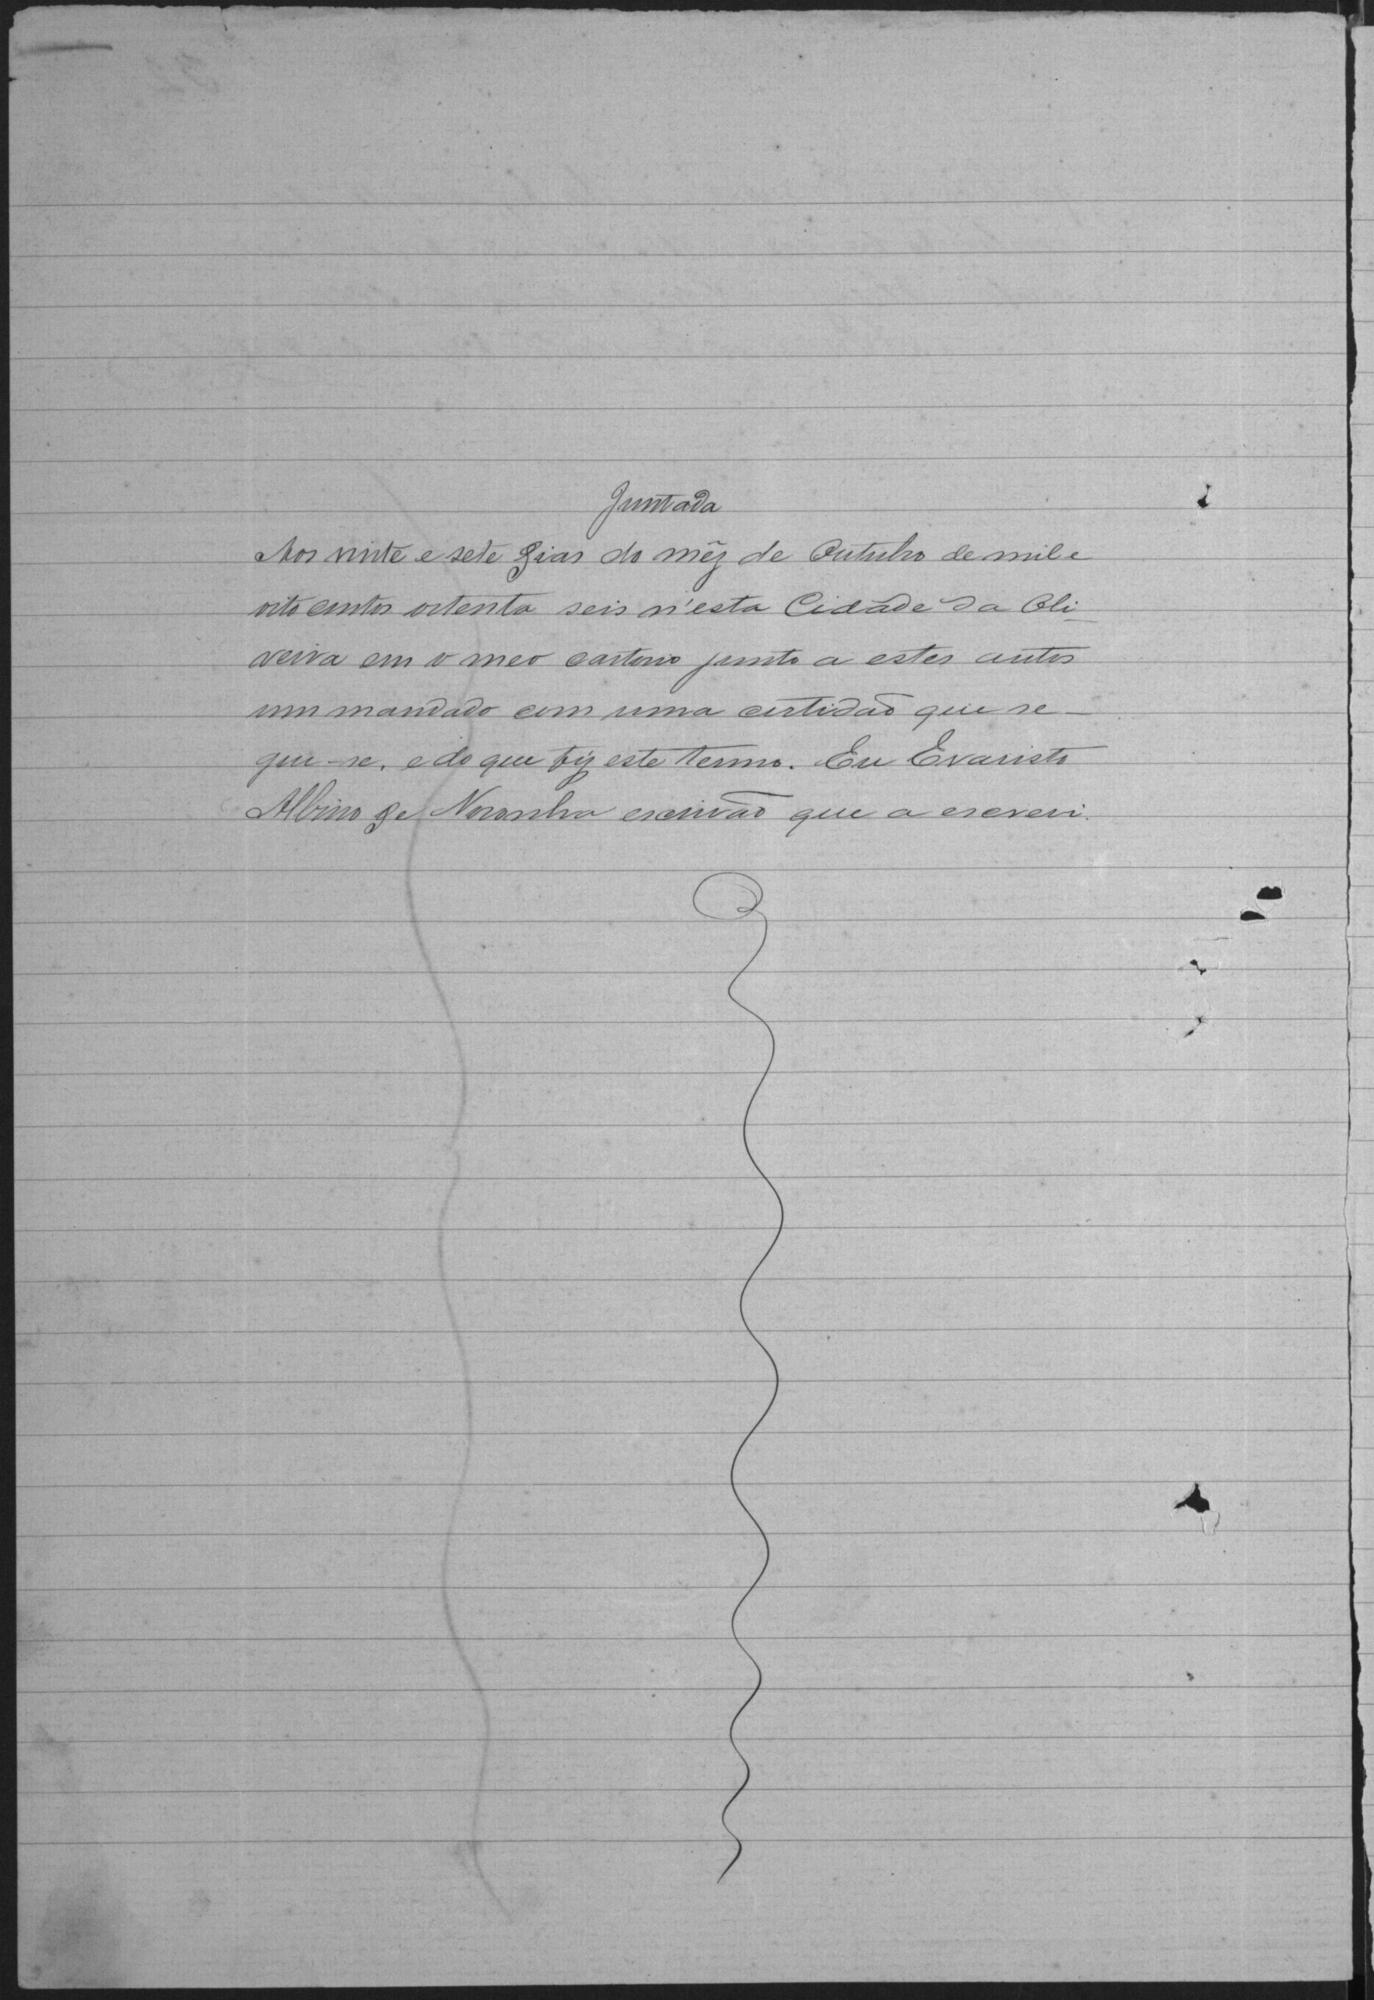 Juntada
Aos vinte e sete dias do mêz de Outubro de mil e
oito centos oitenta seis n'esta Cidade da Oli-
veira em o meo cartorio junto a estes autos
um mandado com uma certidaõ que se-
gue-se, e do que fiz este termo. Eu Evaristo
Albino de Noronha escrivaõ que a escrevi.